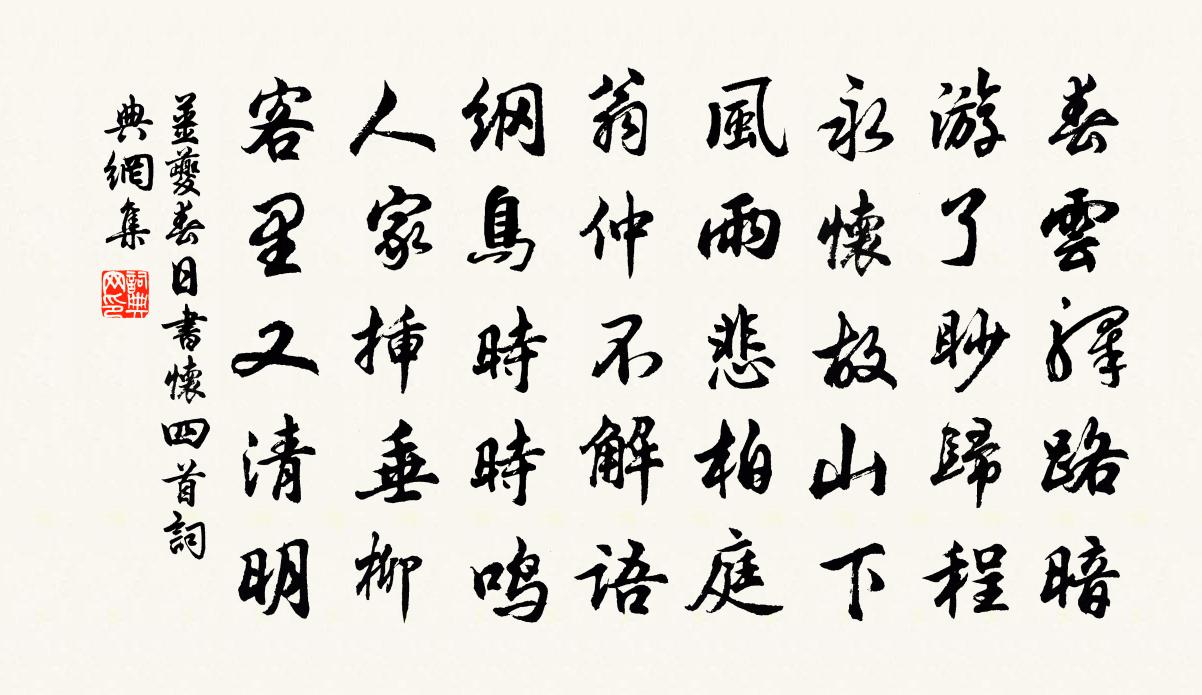 春雲驛路暗
游了眇歸程
永懷故山下
風雨悲柏庭
翁仲不解語
綱鳥時時鳴
人家挿垂柳
客里又清明
姜夔春日書懷四首詞
典網集
詞典
网印